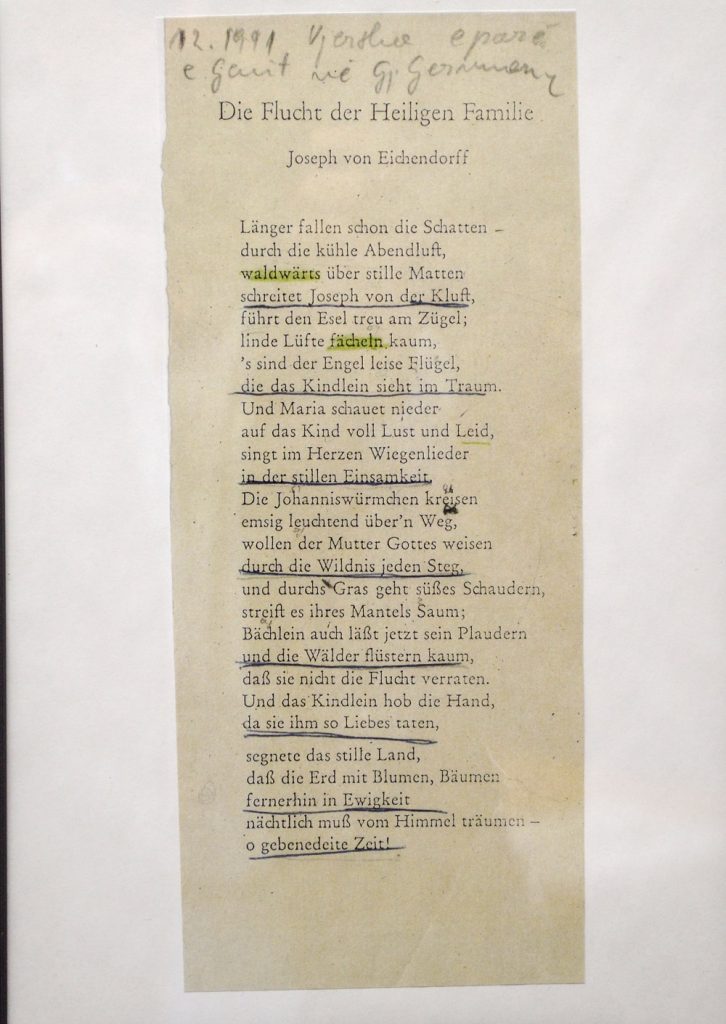 12.1991 Vjersha e parë
e Ganit në Gj. Germany
Die Flucht der Heiligen Familie
Joseph von Eichendorff
Länger fallen schon die Schatten –
durch die kühle Abendluft,
waldwärts über stille Matten
schreitet Joseph von der Kluft,
führt den Esel treu am Zügel;
linde Lüfte fächeln kaum,
's sind der Engel leise Flügel,
die das Kindlein sieht im Traum.
Und Maria schauet nieder
auf das Kind voll Lust und Leid,
singt im Herzen Wiegenlieder
in der stillen Einsamkeit.
Die Johanniswürmchen kreisen
emsig leuchtend über'n Weg,
wollen der Mutter Gottes weisen
durch die Wildnis jeden Steg,
und durchs Gras geht süßes Schaudern,
streift es ihres Mantels Saum;
Bächlein auch läßt jetzt sein Plaudern
und die Wälder flüstern kaum,
daß sie nicht die Flucht verraten.
Und das Kindlein hob die Hand,
da sie ihm so Liebes taten,
segnete das stille Land,
daß die Erd mit Blumen, Bäumen
fernerhin in Ewigkeit
nächtlich muß vom Himmel träumen –
o gebenedeite Zeit!